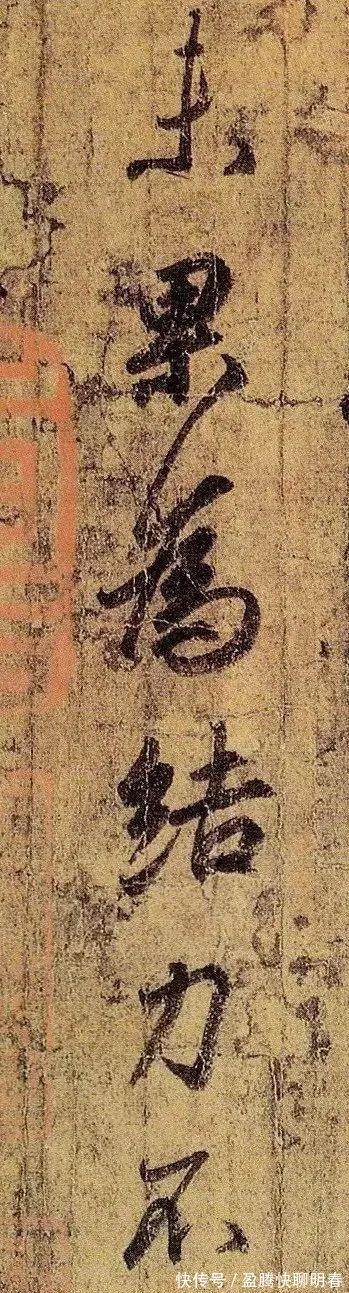 未果為結力不
快传号／盈腾快聊明春